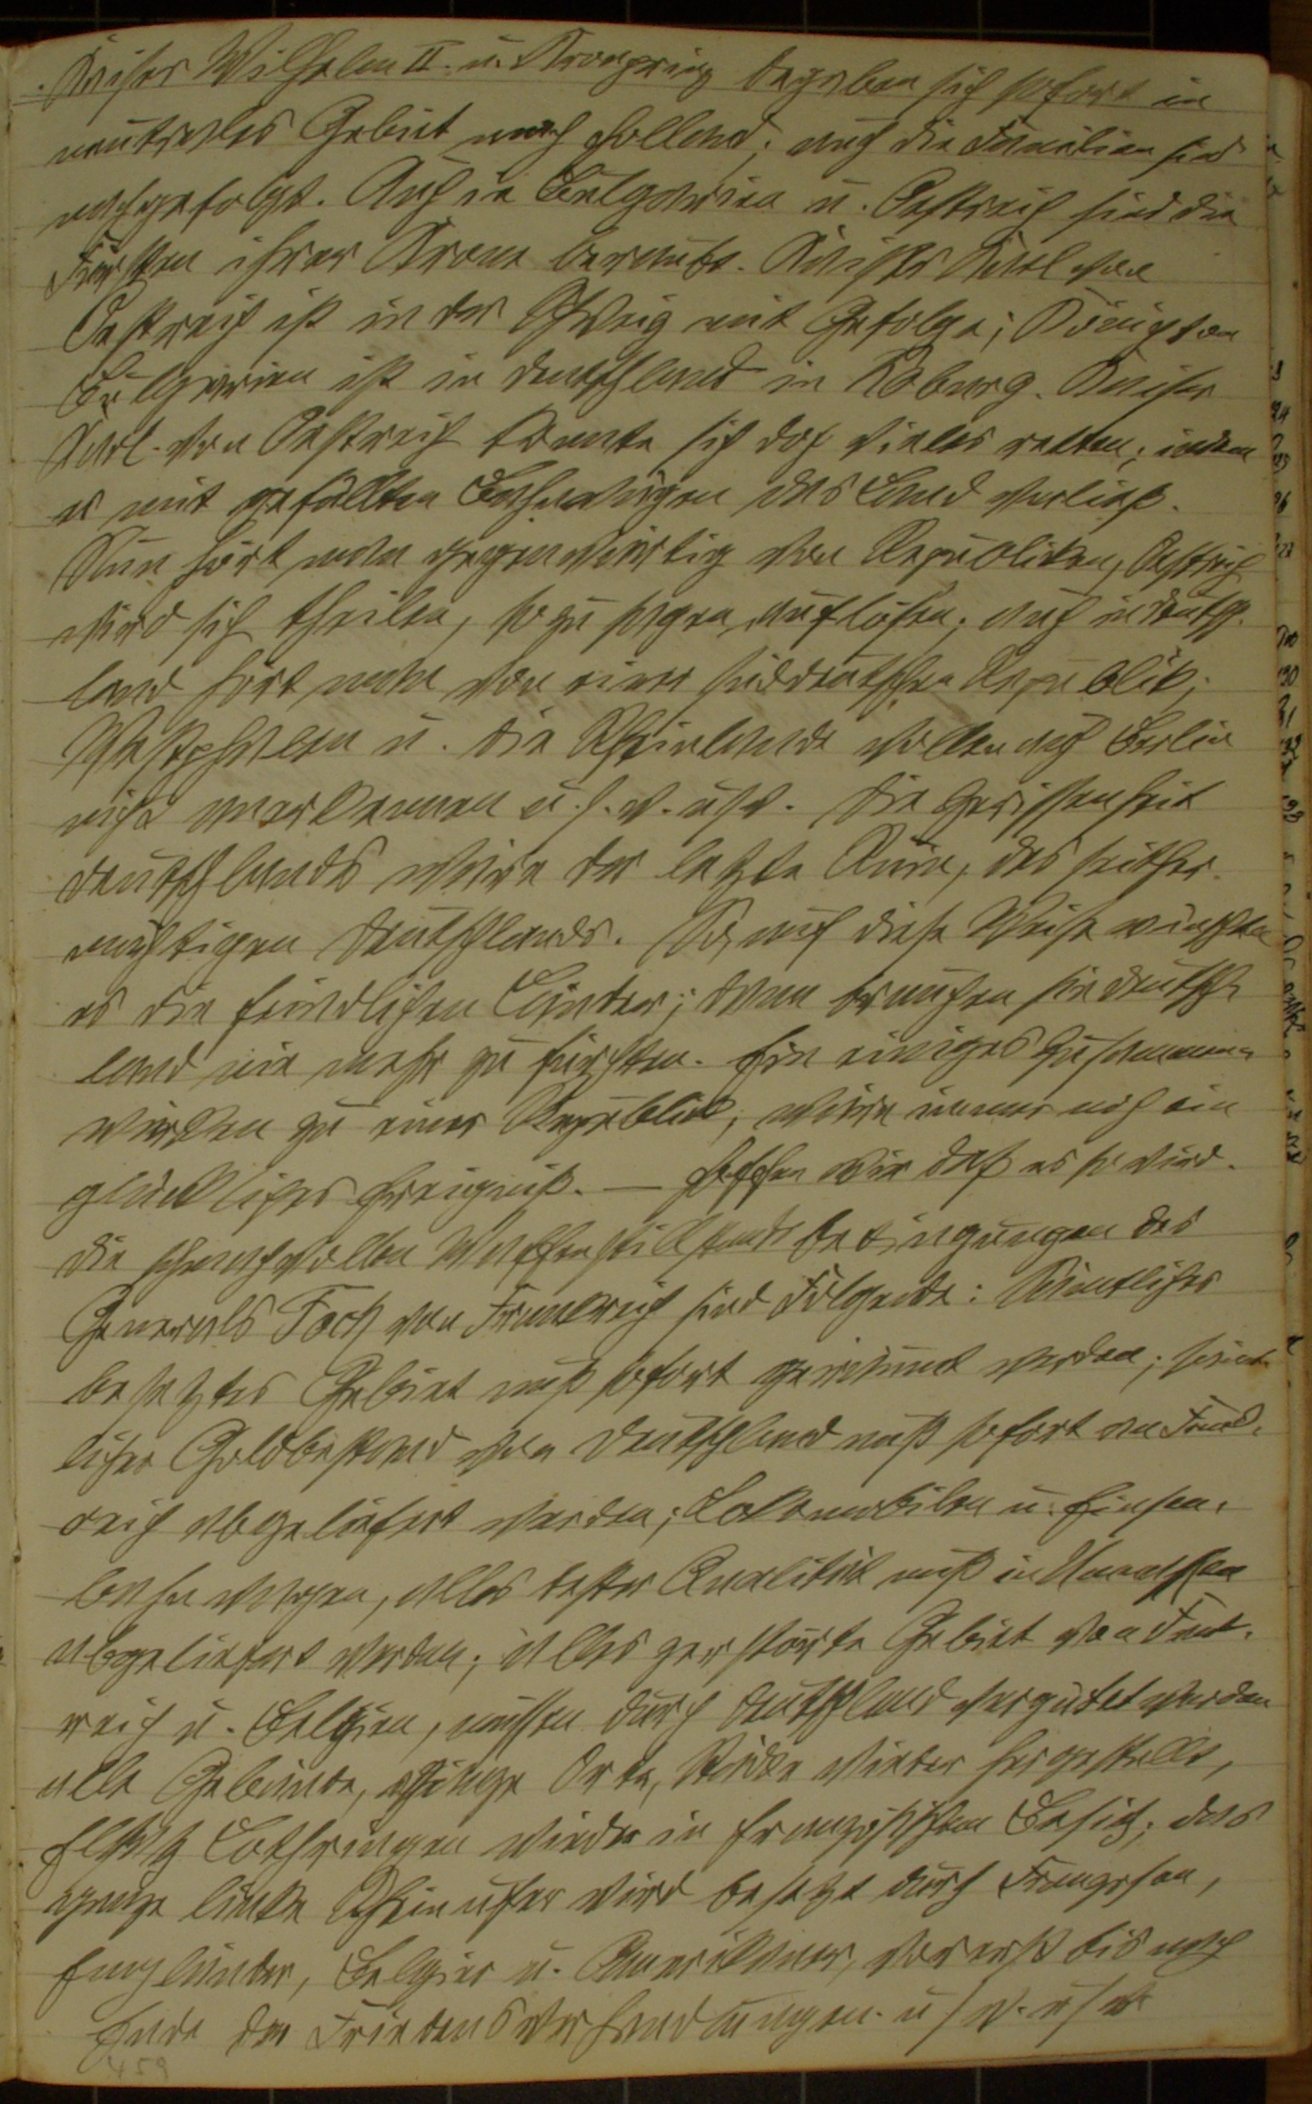 Kaiser Wilhelm II. u. Kronprinz begeben sich sofort in
neutrales Gebiet nach Holland; auch die Familien sind
nachgefolgt. Auch in Bulgarien u. Oestreich sind die
Fürsten ihrer Krone beraubt. Kaiser Karl von
Oestreich ist in der Schweiz mit Gefolge; König von
Bulgarien ist in Deutschland in Koburg. Kaiser
Karl von Oestreich konnte sich doch vieles retten; indem
er mit gefüllten Bahnwägen das Land verließ.
Nun hört man gegenwärtig von Republiken, Oestreich
wird sich theilen, so zu sagen auflösen; auch in Deutsch-
land hört man von einer süddeutschen Republik;
Westphalen u. die Rheinlande wollen auch Berlin
nicht anerkennen u.s.w. usw. Die Zerissenheit
Deutschlands wäre der letzte Ruin, des seither
mächtigen Deutschlands. So, auf diese Weise wünschen
es die feindlichen Länder; dann brauchen sie Deutsch-
land nie mehr zu fürchten. Ein einiges Zusammen-
wirken zu einer Republik, wäre immer noch ein
glückliches Ereigniß. — Hoffen wir daß es so wird.
Die schmachvollen Waffenstillstandsbedingungen des
Generals Foch von Frankreich sind Folgende: Sämtliches
besetztes Gebiet muß sofort geräumt werden; sämt-
licher Goldbestand von Deutschland muß sofort an Frank-
reich abgeliefert werden; Lokomobilen u. Einsen-
bahnwagen, alles bester Qualität muß in Unmassen
abgeliefert werden; alles zerstörte Gebiet von Frank-
reich u. Belgien, müssen durch Deutschland vergütet werden
alle Gebäude, ganze Orte, Städte wieder hergestellt,
Elsaß Lothringen wieder in französischen Besitz; das
ganze linke Rheinufer wird besetzt durch Franzosen,
Engländer, Belgier u. Amerikaner, vorerst bis nach
Ende der Friedensverhandlungen. u.s.w. usw
459